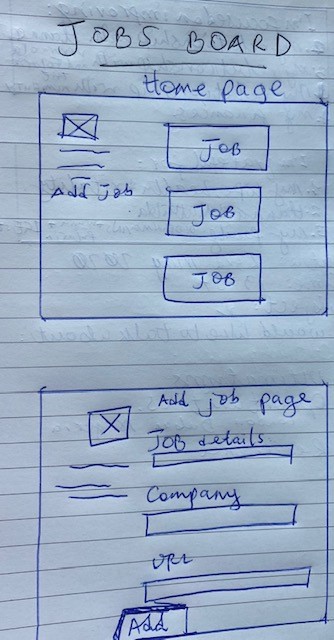 JOBS BOARD
Home page
JOB
Add Job
JOB
JOB
Add job page
JOB details
Company
URL
Add